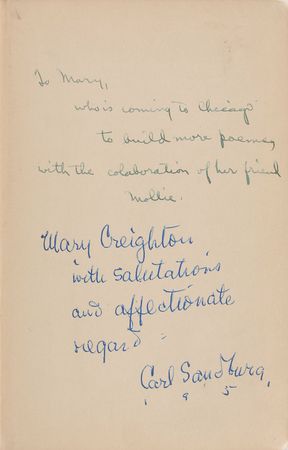 To Mary,
who is coming to Chicago
to build more poems,
with the colaboration of her friend
Mollie.
Mary Creighton
with salutations
and affectionate
regard =
Carl Sandburg
1 9 5